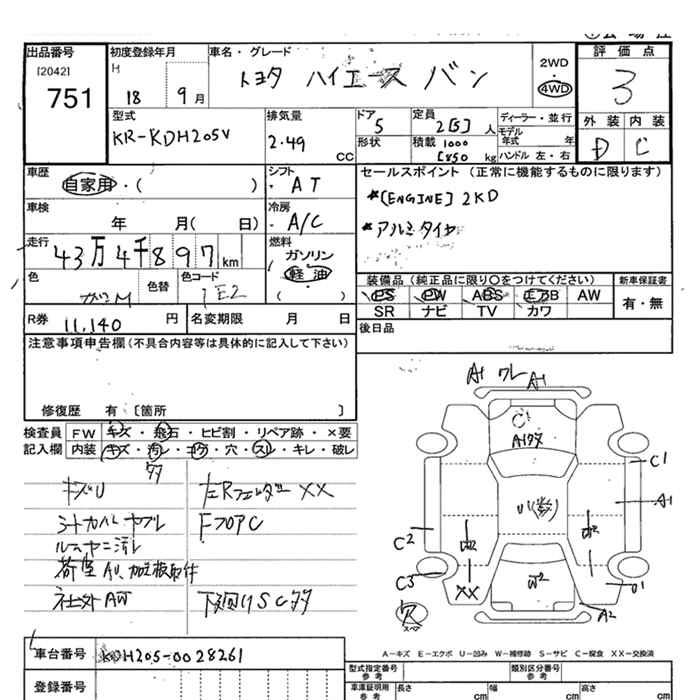 出品番号
[2042]
751
初度登録年月
H 18 9 月
車名・グレード
トヨタ ハイエース バン
2WD
・
4WD
評価点
3
外装 内装
D C
型式
KR-KDH205V
排気量
2.49 CC
ドア
5
形状
定員
2[5] 人
積載 1000
[850 kg
ディーラー・並行
モデル年式 年
ハンドル 左・右
車歴
自家用・( )
シフト
・AT
セールスポイント (正常に機能するものに限ります)
*[ENGINE] 2KD
*アルミタイヤ
車検
年 月( 日)
冷房
・A/C
走行
43万4千897 km
燃料
ガソリン
軽油
( )
色
ガンM
色替
色コード
1E2
装備品(純正品に限り〇をつけてください)
PS PW ABS エアB AW
SR ナビ TV カワ
新車保証書
有・無
R券 11,140 円
名変期限 月 日
後日品
注意事項申告欄(不具合内容等は具体的に記入して下さい)
修復歴 有〔箇所 〕
検査員 FW キズ・飛石・ヒビ割・リペア跡・×要
記入欄 内装 キズ・汚レ・コゲ・穴・スレ・キレ・破レ
多
キズU
左Rフェンダー XX
シートカバー ヤブレ
FフロアC
ルーム ヤニ汚レ
荷室AU、加工板取付
社外AW
下廻りSC多
A1 ワレ A1
C1
A1
U(数)
C2
W2
C3
XX
W2
U1
A2
穴
車台番号 KDH205-0028261
登録番号
A-キズ E-エクボ U-凹み W-補修跡 S-サビ C-腐食 XX-交換済
型式指定番号
参考
類別区分番号
参考
車庫証明用
参考
長さ cm 幅 cm 高さ cm